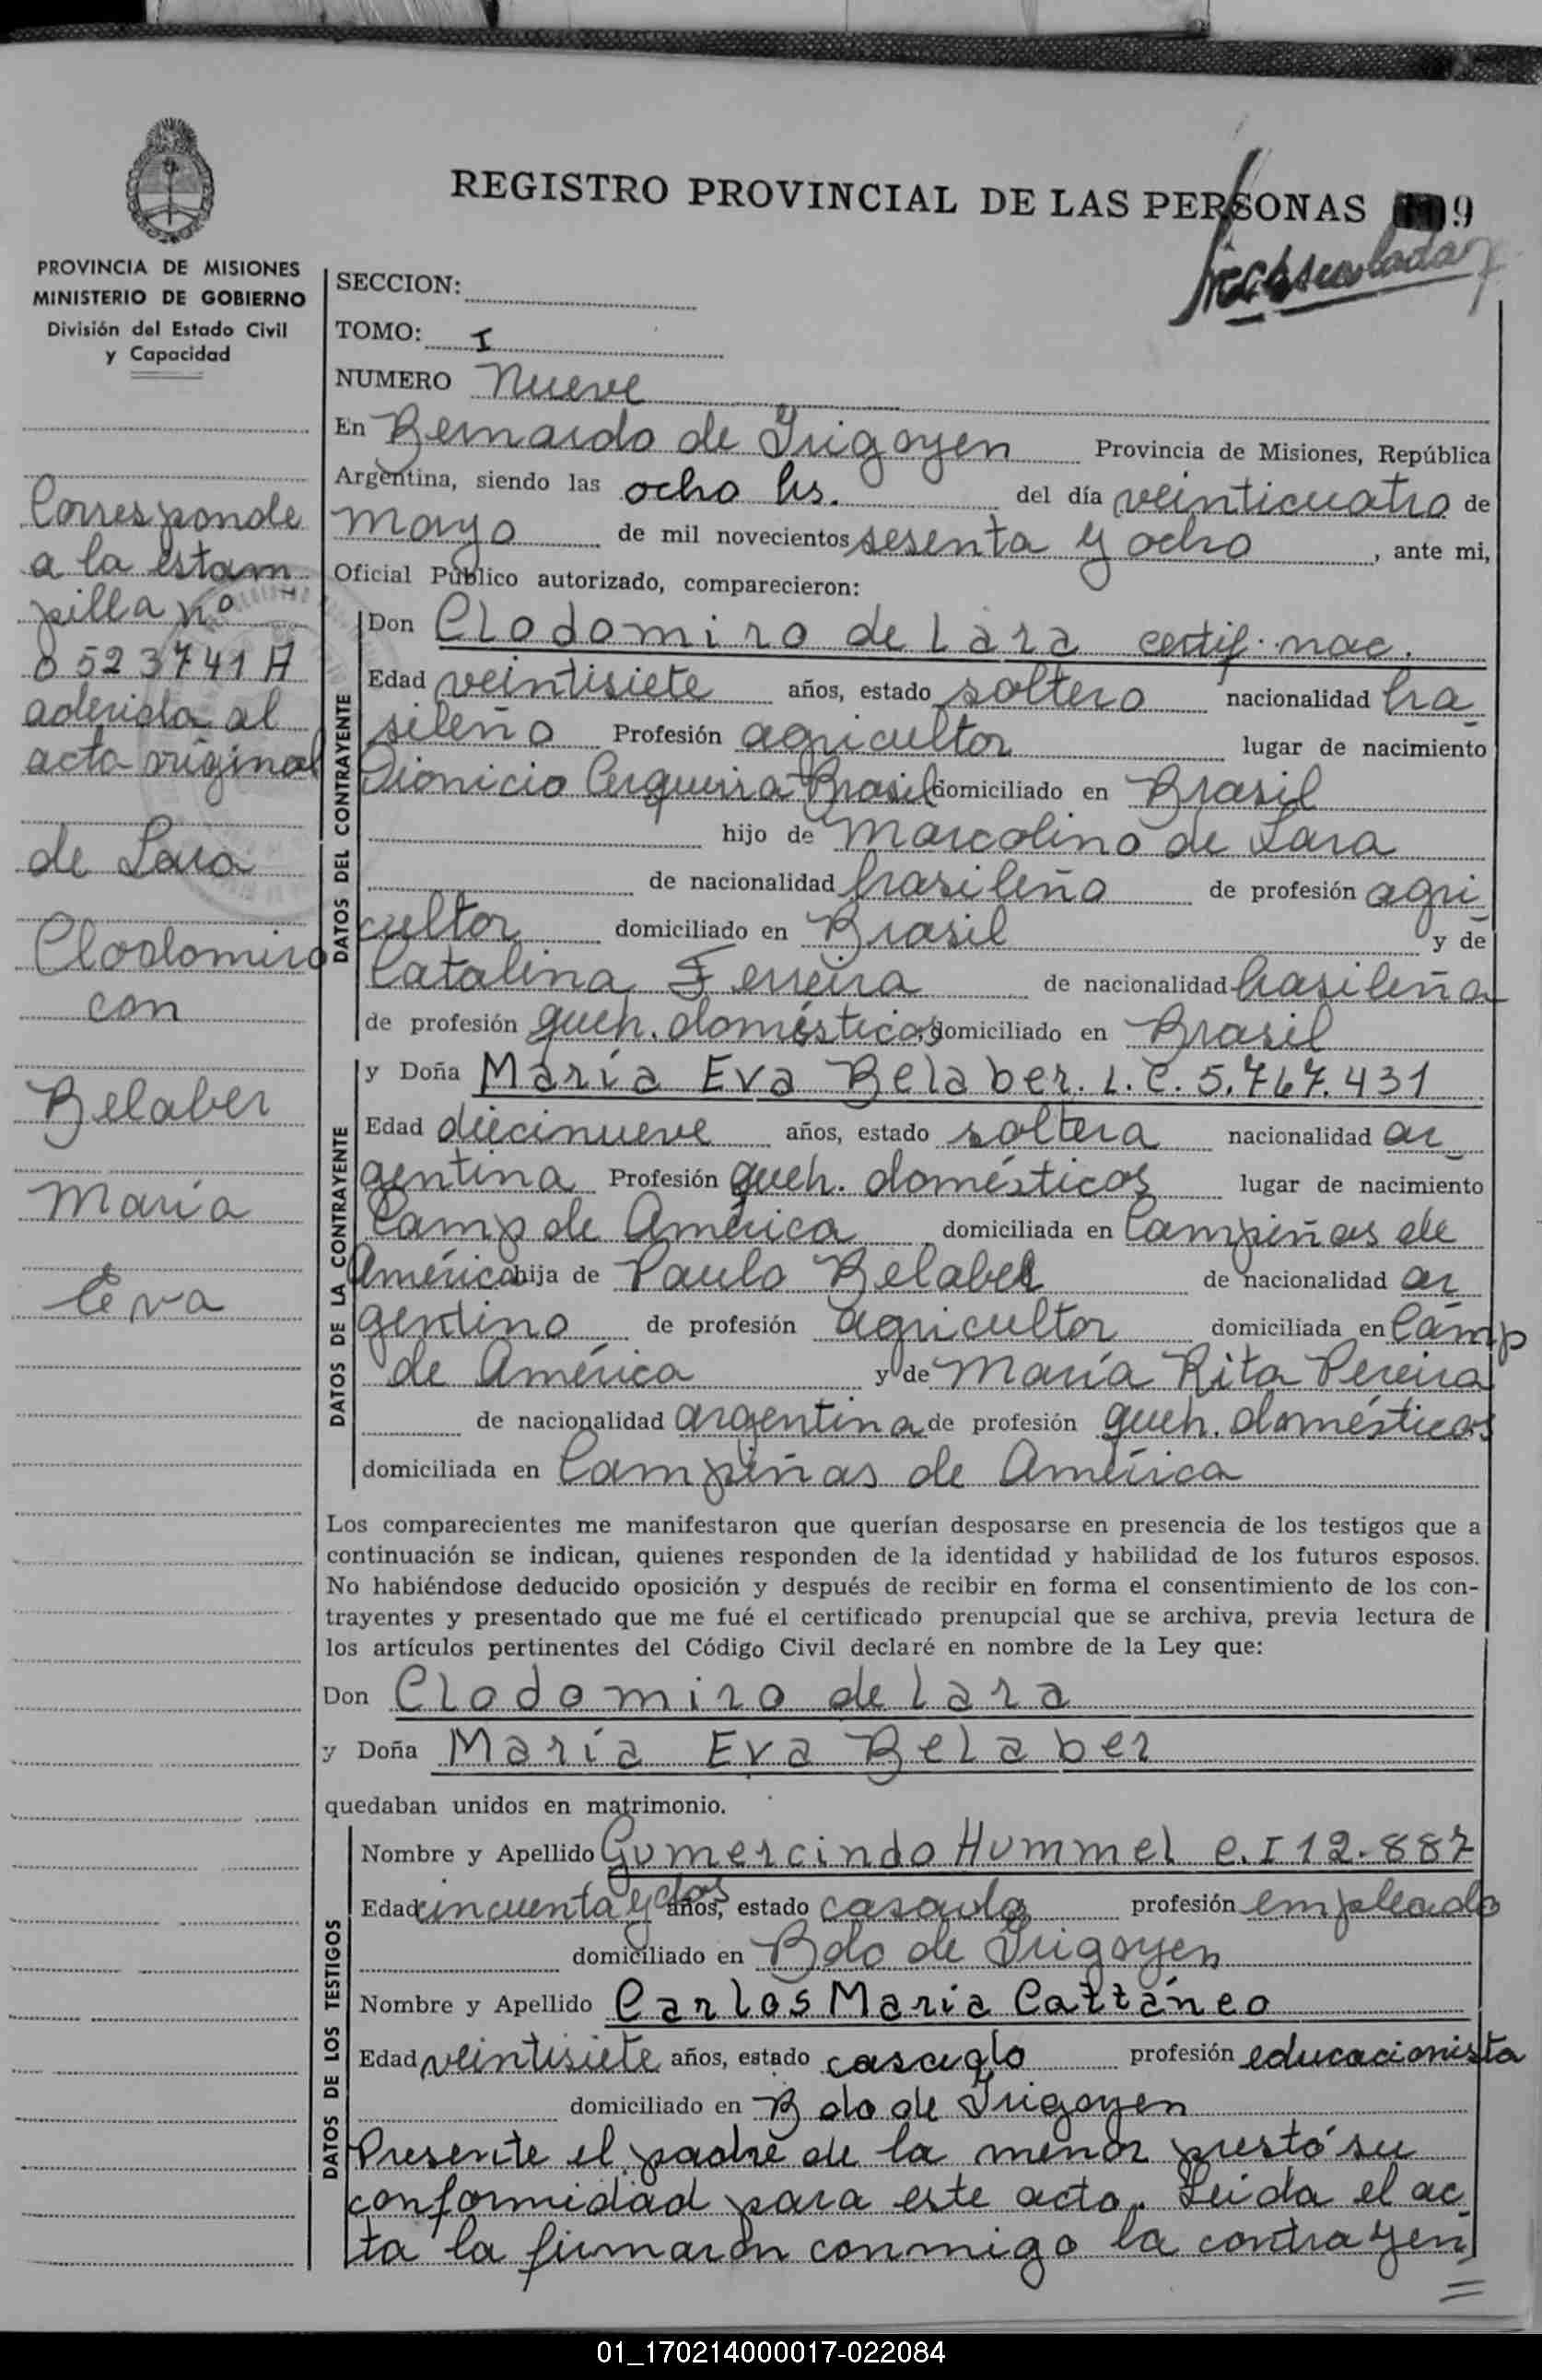 REGISTRO PROVINCIAL DE LAS PERSONAS 9
PROVINCIA DE MISIONES
MINISTERIO DE GOBIERNO
División del Estado Civil
y Capacidad
Corresponde
a la estam
pilla nº
0523741 A
aderida al
acta original
de Lara
Clodomiro
con
Belaber
María
Eva
SECCION:
TOMO: I
NUMERO Nueve
En Bernardo de Irigoyen Provincia de Misiones, República
Argentina, siendo las ocho hs. del día veinticuatro de
mayo de mil novecientos sesenta y ocho, ante mi,
Oficial Público autorizado, comparecieron:
DATOS DEL CONTRAYENTE
Don Clodomiro de Lara certif. nac.
Edad veintisiete años, estado soltero nacionalidad bra
sileño Profesión agricultor lugar de nacimiento
Dionicio Cerqueira Brasil domiciliado en Brasil
hijo de Marcolino de Lara
de nacionalidad brasileño de profesión agri
cultor domiciliado en Brasil y de
Catalina Ferreira de nacionalidad brasileña
de profesión queh. domésticos domiciliado en Brasil
DATOS DE LA CONTRAYENTE
y Doña María Eva Belaber. L. C. 5.767.431
Edad diecinueve años, estado soltera nacionalidad ar
gentina Profesión queh. domésticos lugar de nacimiento
Camp de América domiciliada en Campiñas de
América hija de Paulo Belaber de nacionalidad ar
gentino de profesión agricultor domiciliada en Camp
de América y de María Rita Pereira
de nacionalidad argentina de profesión queh. domésticos
domiciliada en Campiñas de América
Los comparecientes me manifestaron que querían desposarse en presencia de los testigos que a
continuación se indican, quienes responden de la identidad y habilidad de los futuros esposos.
No habiéndose deducido oposición y después de recibir en forma el consentimiento de los con-
trayentes y presentado que me fué el certificado prenupcial que se archiva, previa lectura de
los artículos pertinentes del Código Civil declaré en nombre de la Ley que:
Don Clodomiro de Lara
y Doña María Eva Belaber
quedaban unidos en matrimonio.
DATOS DE LOS TESTIGOS
Nombre y Apellido Gumercindo Hummel C. I 12.887
Edad cincuenta y dos años, estado casado profesión empleado
domiciliado en Bdo de Irigoyen
Nombre y Apellido Carlos Maria Cattáneo
Edad veintisiete años, estado casado profesión educacionista
domiciliado en Bdo de Irigoyen
Presente el padre de la menor prestó su
conformidad para este acto. Leida el ac
ta la firmaron conmigo la contrayen
01_170214000017-022084